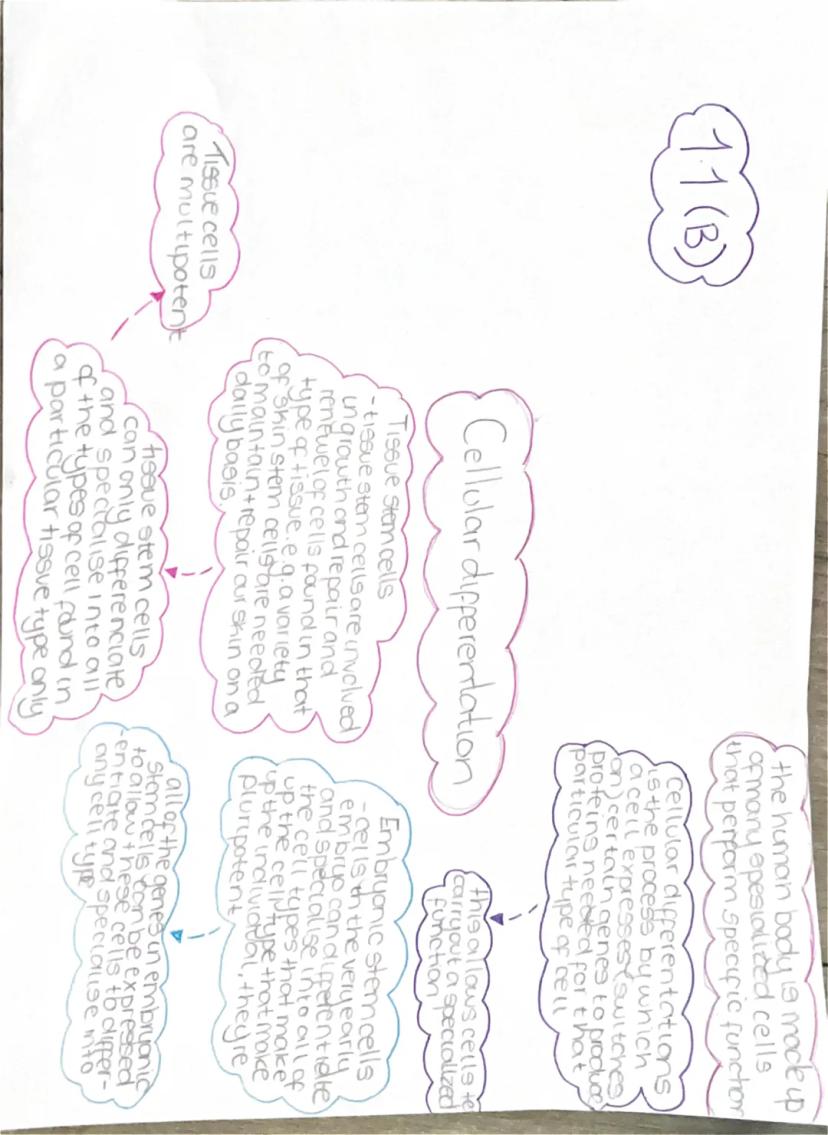 11(B)
the human body is made up
of many spesialized cells
that perform specific function
Cellular differentations
is the process by which
a cell expresses (switches
on) certain genes to produce
proteins needed for that
particular type of cell
this allows cells to
carry out a specialized
function
Cellular differentation
Tissue stem cells
- tissue stem cells are involved
in growth and repair and
renewel of cells found in that
type of tissue. e.g. a variety
of skin stem cells are needed
to maintain + repair our skin on a
daily basis
tissue stem cells
can only differenciate
and specialise into all
of the types of cell found in
a particular tissue type only
Tissue cells
are multypotent
Embryonic stem cells
- cells in the very early
embryo can differentiate
and specialise into all of
the cell types that make
up the cell type that make
up the individual, they're
pluripotent
all of the genes in embryonic
stem cells can be expressed
to allow these cells to differ-
entiate and specialise into
any cell type